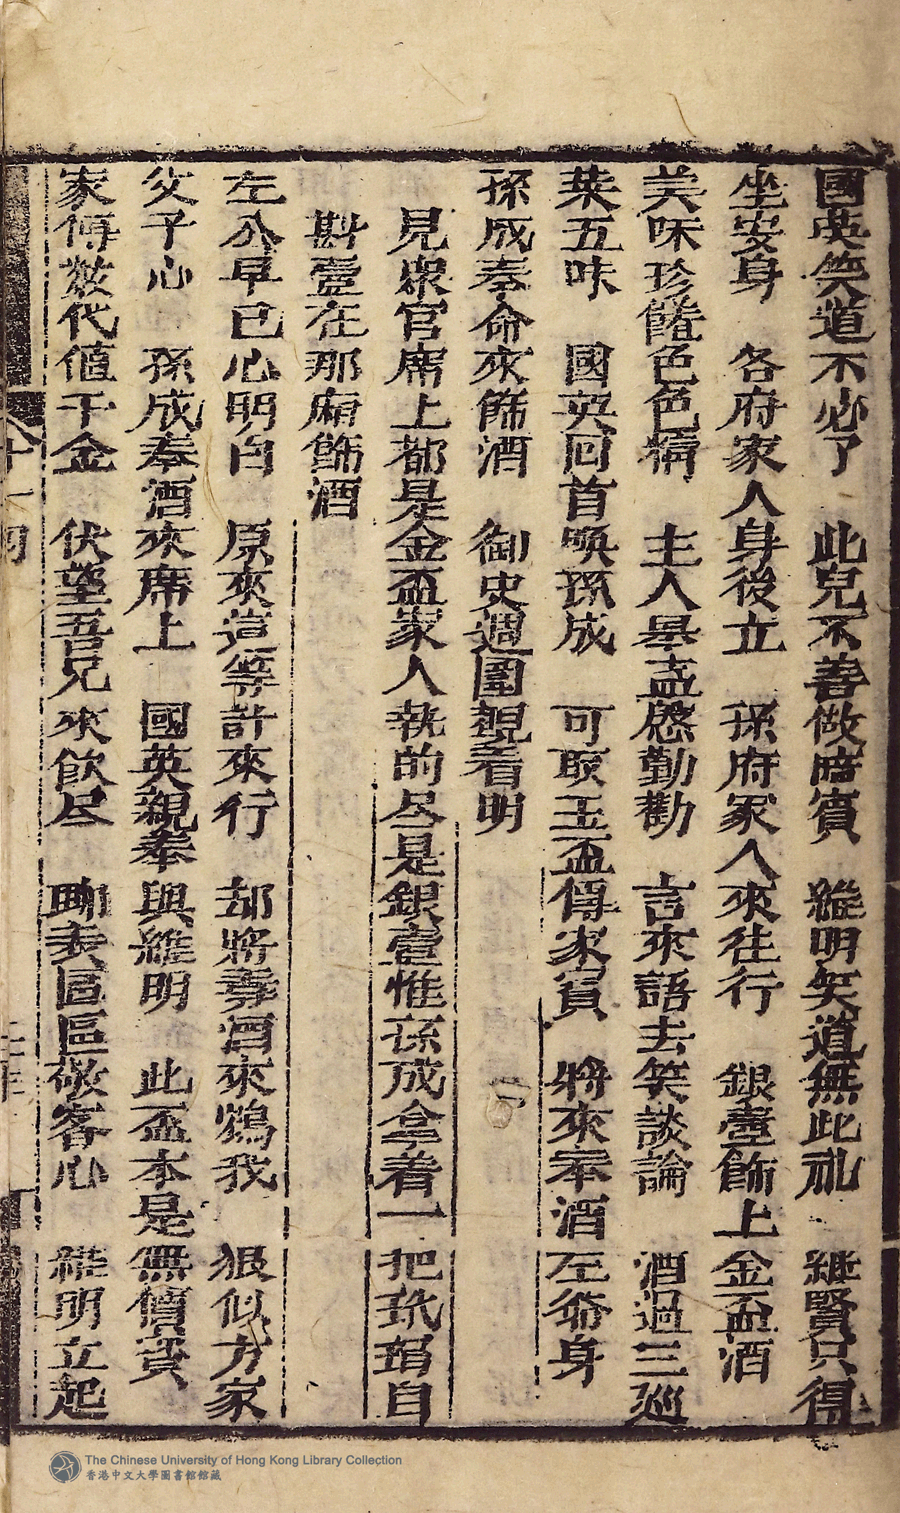 國英笑道不必了　此兒不善做啨賓　維明笑道無此礼　維賢只得
坐安身　各府家人身後立　孫府家人來往行　銀壺飾上金盃酒
美味珍饈色色精　主人舉盞慇勤勸　言來語去笑談論　酒過三巡
菜五味　國英回首喚孫成　可取玉盃傳家寳　將來奉酒左爺身
孫成奉命來飾酒　御史週圍覩看明
見衆官席上都是金盃家人執的尽是銀壺惟孫成拿着一把玳瑁自
斟壺在那廂飾酒
左公早已心明白　原來這等計來行　却將壽酒來鴆我　狠似方家
父子心　孫成奉酒來席上　國英親奉與維明　此盃本是無價寳
家傳數代值千金　伏望吾兄來飲尽　聊表區區敬客心　維明立起
The Chinese University of Hong Kong Library Collection
香港中文大學圖書館館藏